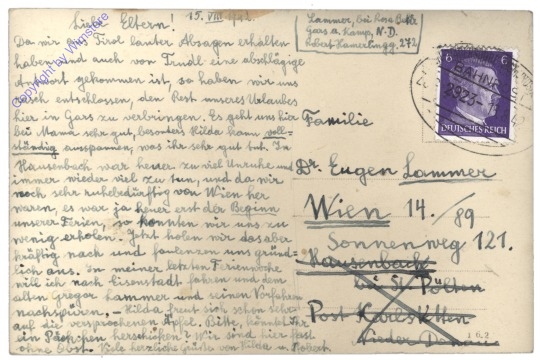 Liebe Eltern! 15. VIII. 42.
Da wir aus Tirol lauter Absagen erhalten
haben und auch von Trudl eine abschlägige
Antwort gekommen ist, so haben wir uns
rasch entschlossen, den Rest unseres Urlaubes
hier in Gars zu verbringen. Es geht uns hier
bei Mama sehr gut, besonders Hilda kann voll-
ständig ausspannen, was ihr sehr gut tut. In
Hausenbach war heuer zu viel Unruhe und
immer wieder viel zu tun, und da wir
noch sehr ruhebedürftig von Wien her
waren, es war ja heuer erst der Beginn
unserer Ferien, so konnten wir uns zu
wenig erholen. Jetzt holen wir das aber
kräftig nach und faulenzen uns gründ-
lich aus. In meiner letzten Ferienwoche
will ich nach Eisenstadt fahren und dem
alten Gregor Lammer und seinen Vorfahren
nachspüren. - Hilda freut sich schon sehr
auf die versprochenen Äpfel. Bitte, könntet Ihr
ein Päckchen herschicken? Wir sind hier fast
ohne Obst. Viele herzliche Grüße von Hilda u. Robert
Lammer, bei Rosa
Gars a. Kamp, N.D.
Robert Hamerlingg. 272
6 6
DEUTSCHES REICH
BAHNP
Familie
Dr. Eugen Lammer
Wien 14./89
Sonnenweg 121.
Hausenbach
bei St. Pölten
Post Karlstetten
Nieder Donau
Copyright by Wignstore